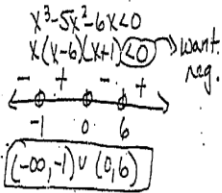 x³-5x²-6x<0
x(x-6)(x+1)<0 → want
neg.
- + - +
-1 0 6
(-∞,-1)∪(0,6)